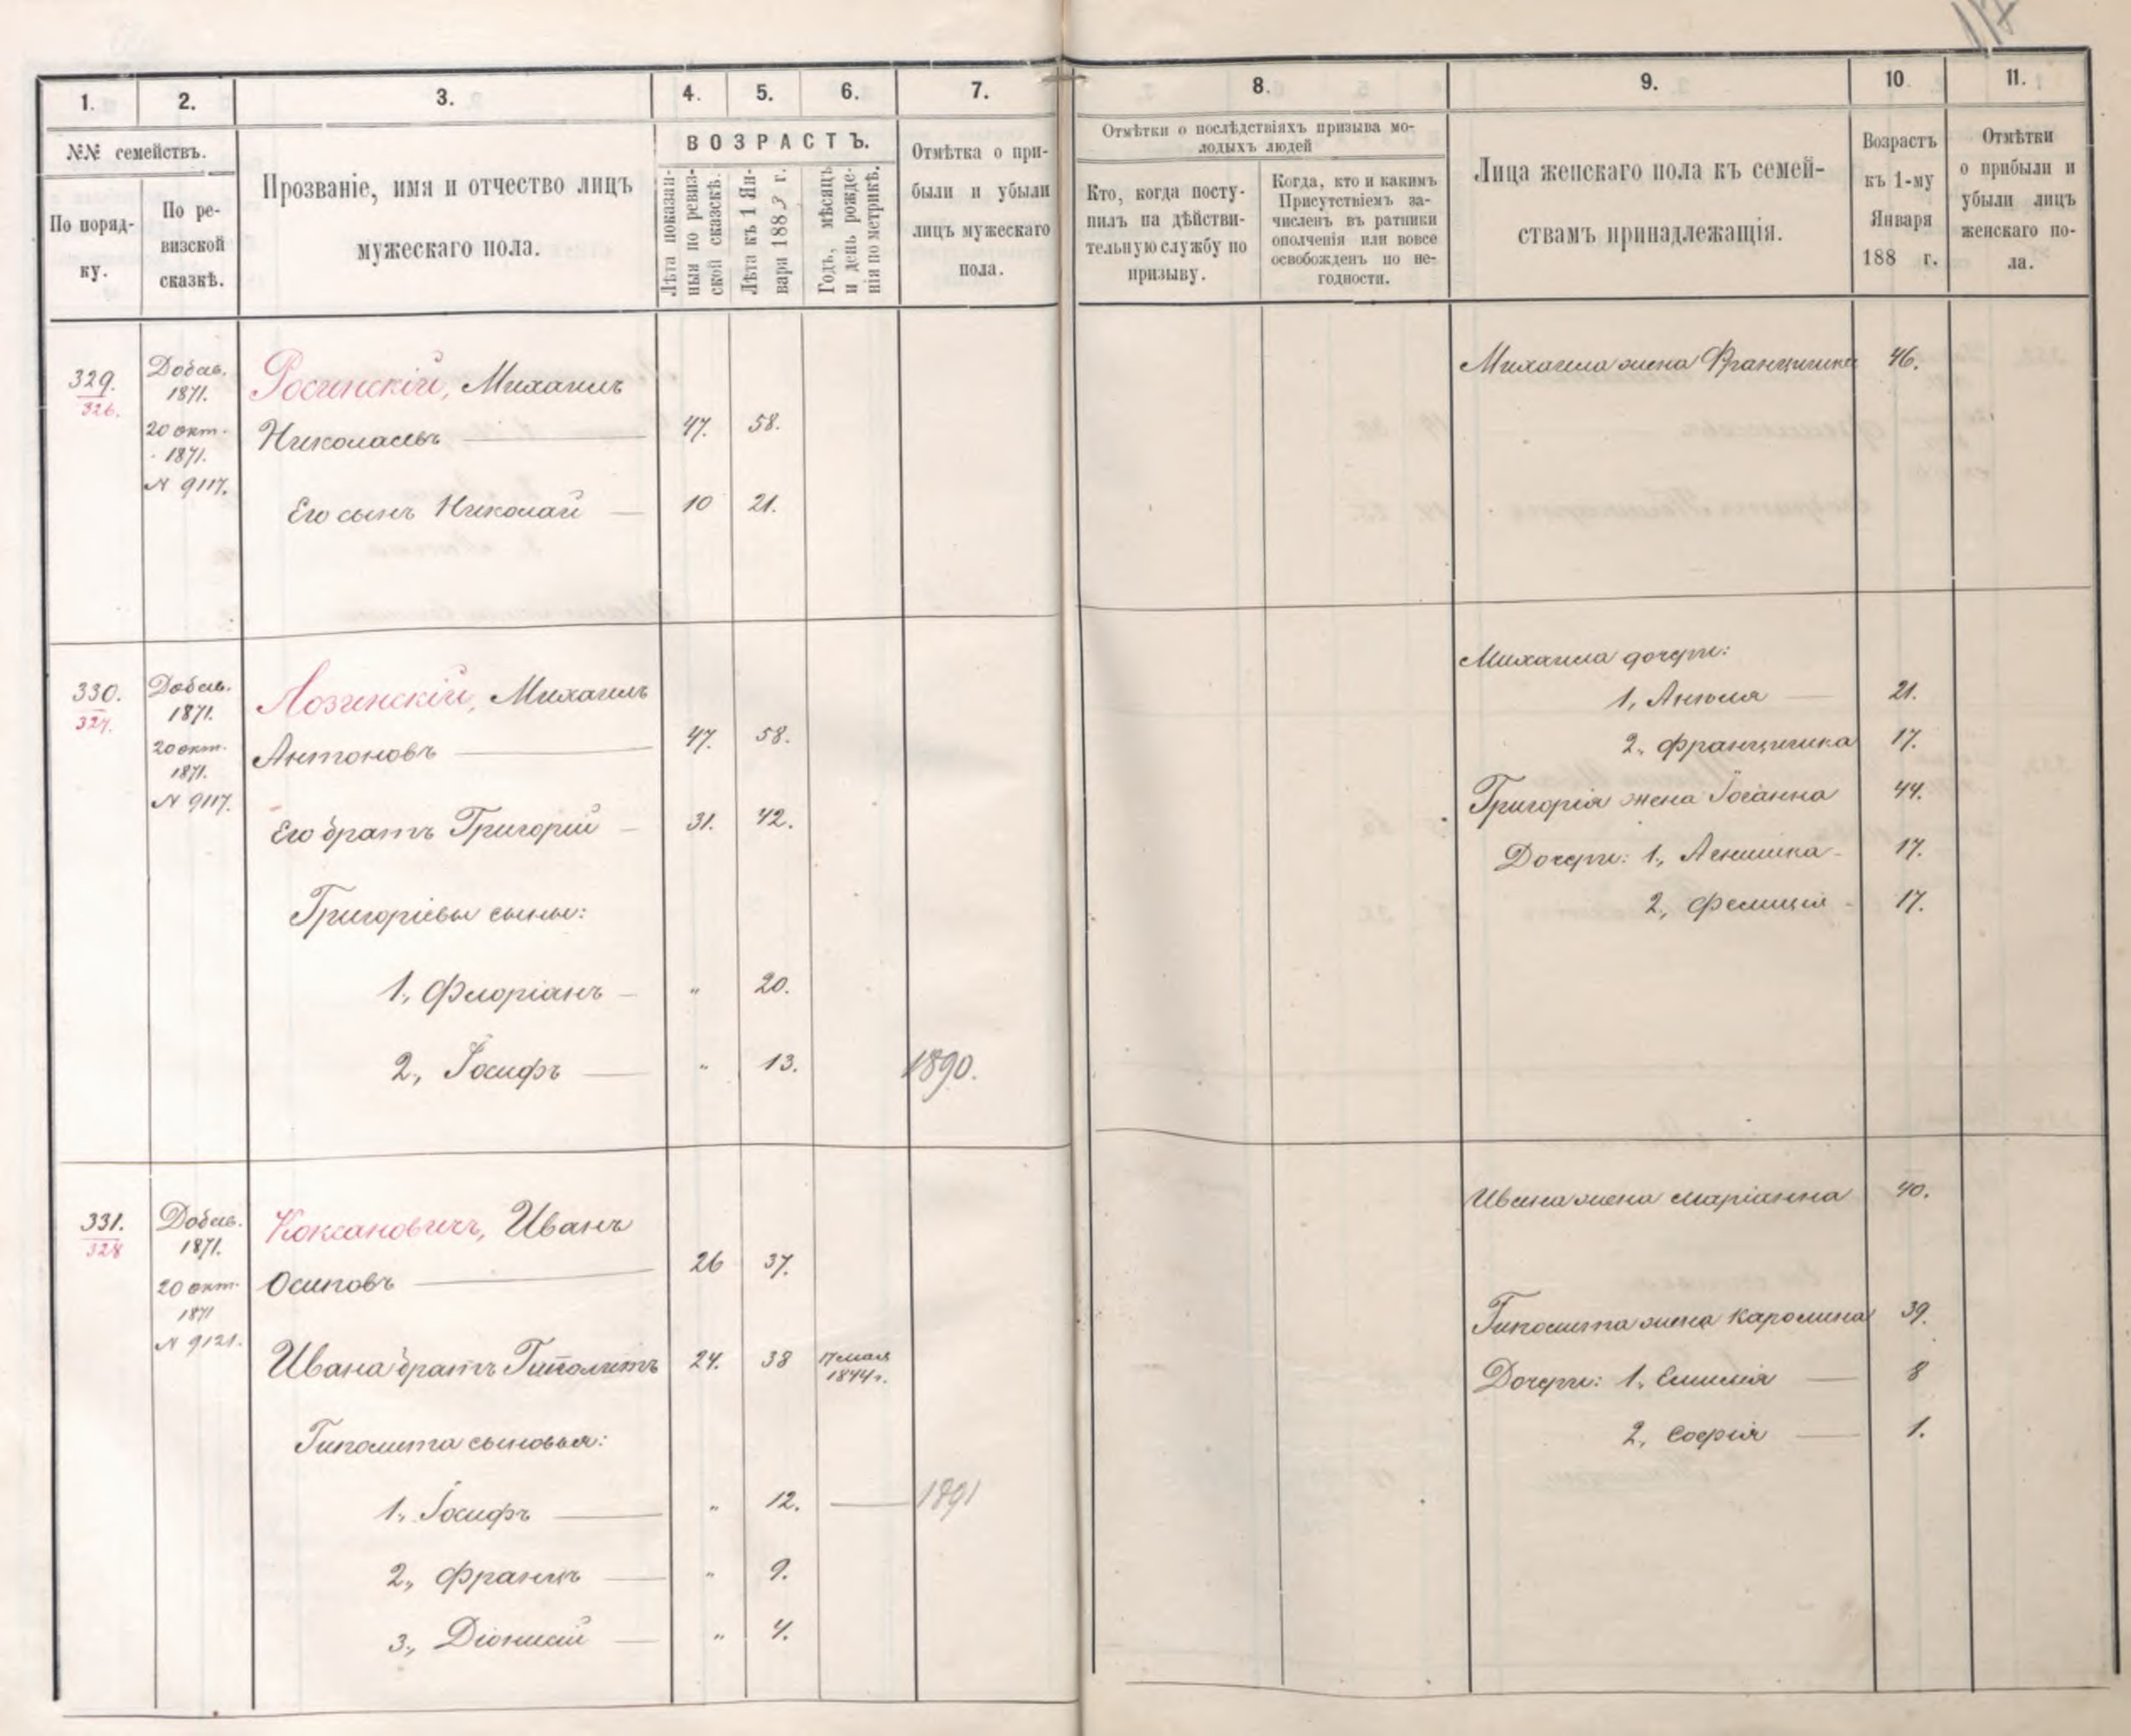 117
1.
2.
3.
4.
5.
6.
7.
8.
9.
10.
11.
№№ семействъ.
По поряд-
ку.
По ре-
визской
сказкѣ.
Прозваніе, имя и отчество лицъ
мужескаго пола.
ВОЗРАСТЪ.
Лѣта показан-
ныя по ревиз-
ской сказскѣ.
Лѣта къ 1 Ян-
варя 1883 г.
Годъ, мѣсяцъ
и день рожде-
нія по метрикѣ.
Отмѣтка о при-
были и убыли
лицъ мужескаго
пола.
Отмѣтки о послѣдствіяхъ призыва мо-
лодыхъ людей
Кто, когда посту-
пилъ на дѣйстви-
тельную службу по
призыву.
Когда, кто и какимъ
Присутствіемъ за-
численъ въ ратники
ополченія или вовсе
освобожденъ по не-
годности.
Лица женскаго пола къ семей-
ствамъ принадлежащія.
Возрастъ
къ 1-му
Января
188 г.
Отмѣтки
о прибыли и
убыли лицъ
женскаго по-
ла.
329.
326.
Добав.
1871.
20 окт.
1871.
N 9117.
Росинскій, Михаилъ
Николаевъ 47. 58.
Его сынъ Николай 10 21.
Михаила жена Францишка 46.
330.
327.
Добав.
1871.
20 окт.
1871.
N 9117.
Лозинскій, Михаилъ
Антоновъ 47. 58.
Его братъ Григорій 31. 42.
Григоріевы сыны:
1, Флоріанъ „ 20.
2, Іосифъ „ 13. 1890.
Михаила дочери:
1, Анюля 21.
2, Францишка 17.
Григорія жена Іоганна 44.
Дочери: 1, 17.
2, Фелиція 17.
331.
328
Добав.
1871.
20 окт.
1871
N 9121.
Коксановичъ, Иванъ
Осиповъ 26 37.
Ивана братъ Гиполитъ 24. 38 17 мая
1844 г.
Гиполита сыновья:
1, Іосифъ „ 12. 1891
2, Францъ „ 9.
3, Діонисій „ 4.
Ивана жена Маріанна 40.
Гиполита жена Каролина 39.
Дочери: 1, Емилія 8
2, Софія 1.